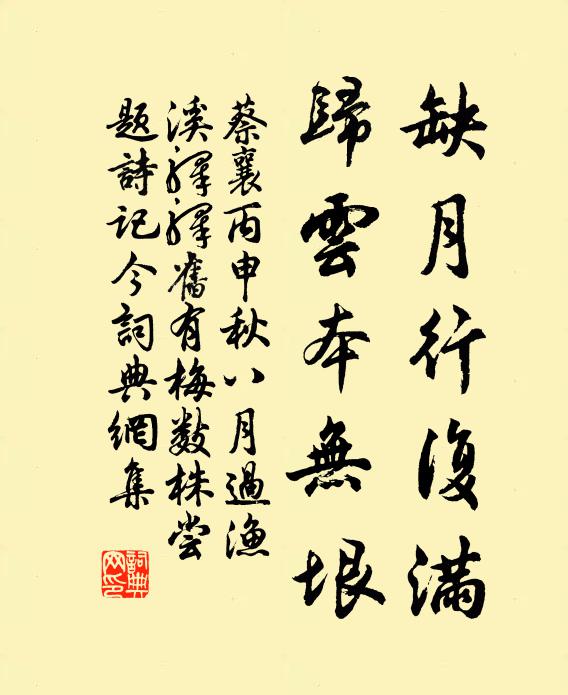 缺月行復滿
歸雲本無垠
蔡襄丙申秋八月過漁
溪驛驛舊有梅数株尝
題詩記今詞典網集
詞典
网印